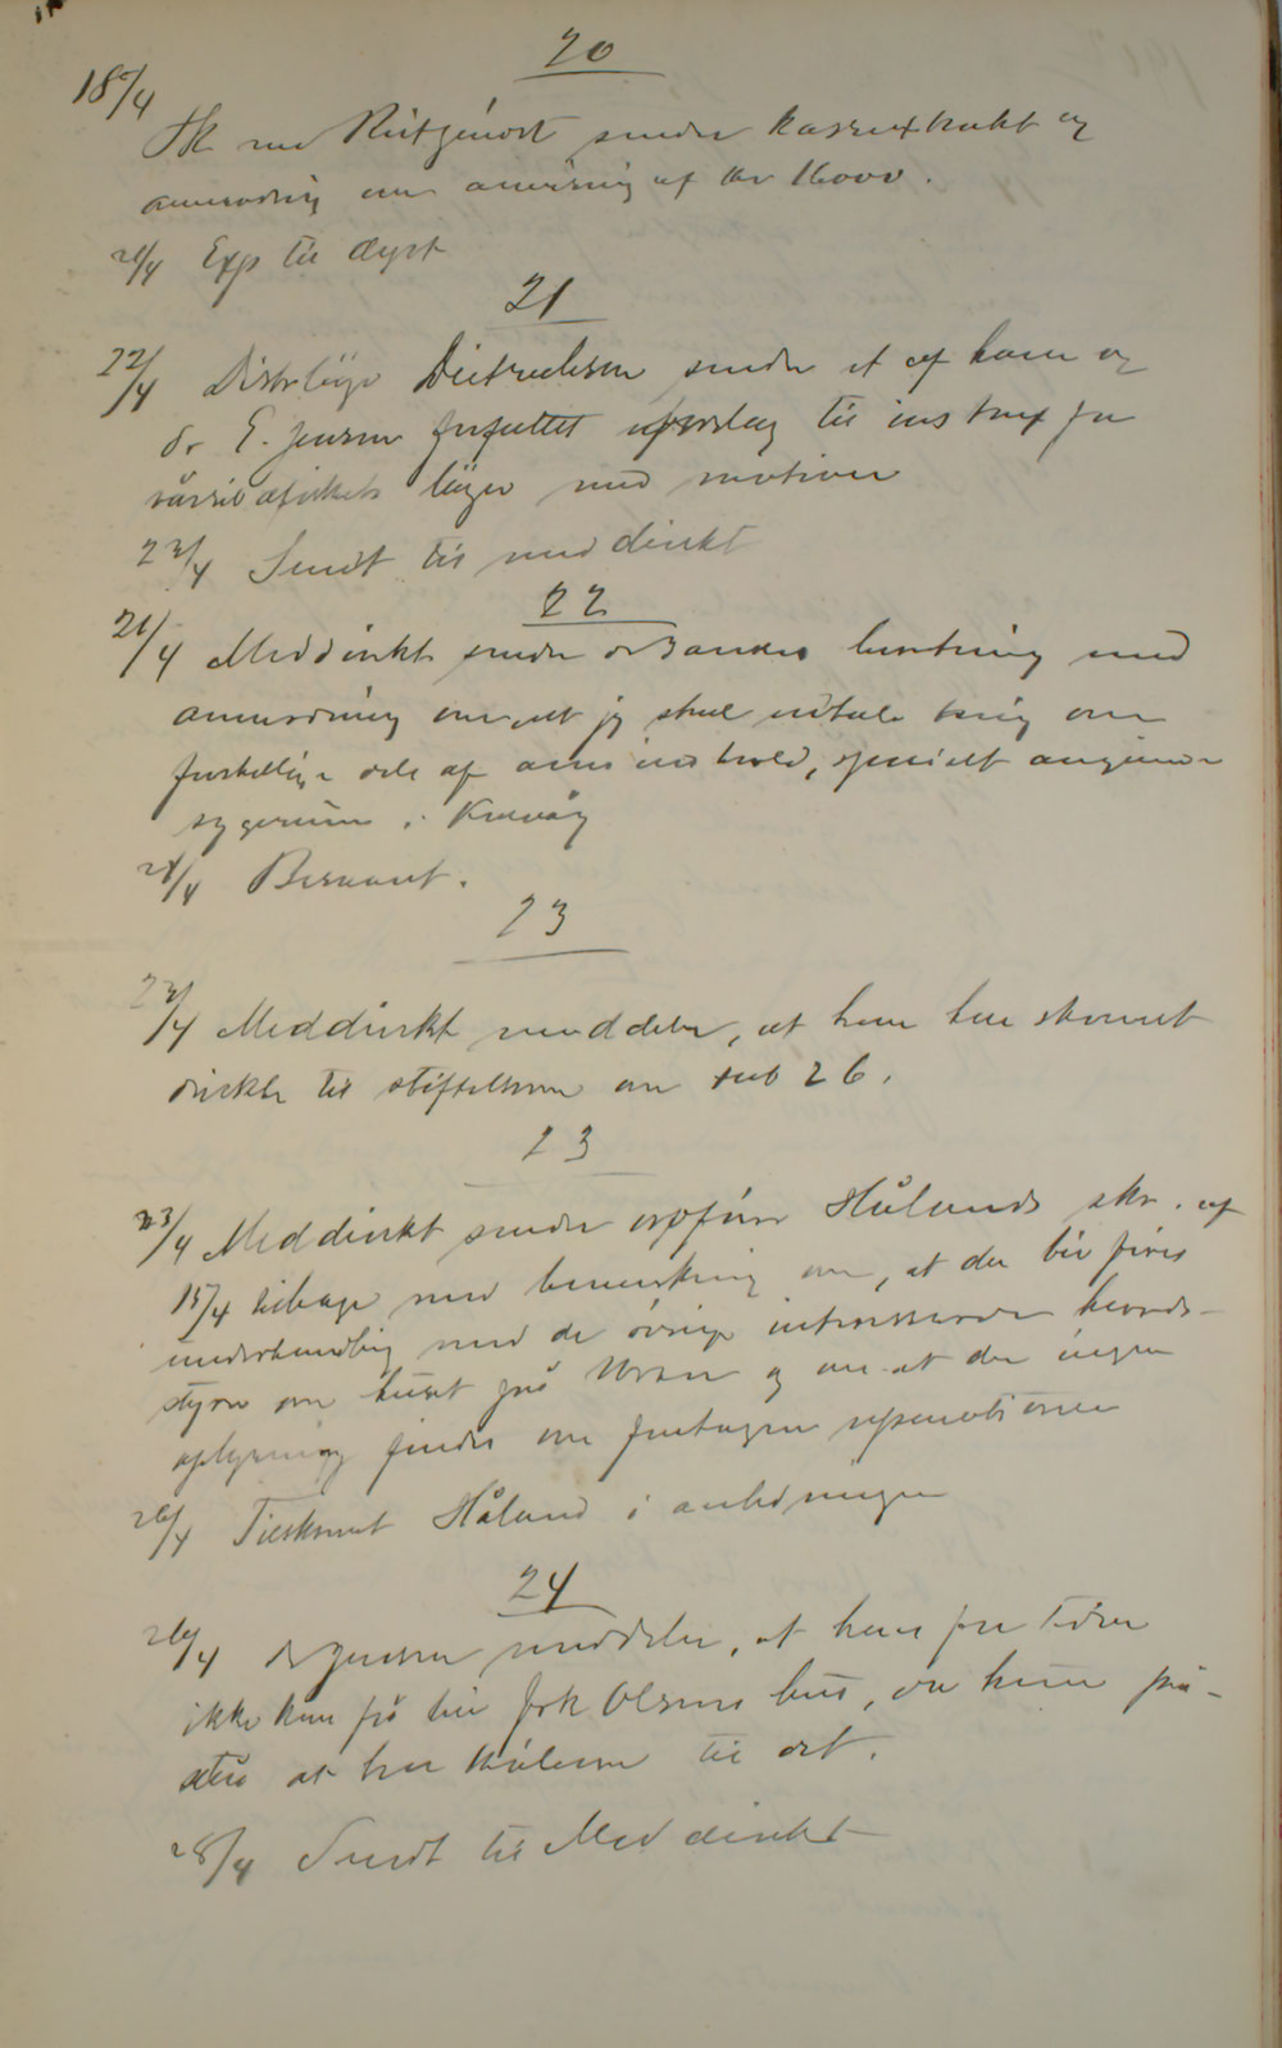 20
18/4
Sk ved Reitgjerdet sender kasseextrakt og
anmodning om anvisning af kr 16000.
21/4 Exp til dept
21
22/4 Distrlæge Dietrichson sender et af ham og
dr E. Jensen forfattet udkast til instrux for
vårsildfiskets læger med motiver
22/4 Sendt til meddirekt
22
21/4 Meddirekt sender dr beretning med
anmodning om at jeg skal udtale mig om
forskellige dele af dens indhold, specielt angående
sygerum i
24/4 Besvaret.
23
23/4 Meddirekt meddeler, at han har skrevet
direkte til stiftelsen om sub 26.
23
23/4 Meddirekt sender opsynsm Hålands skr. af
15/4 tilbage med bemærkning om, at der bør føres
underhandling med de øvrige interesserede herreds-
styrer om huset på og om at der ingen
oplysning findes om foretagne reparationer
26/4 Tilskrevet Håland i anledningen
24
26/4 dr Jensen meddeler, at han for tiden
ikke kan få leie frk Olsens hus, da hun på-
står at ha til det.
28/4 Sendt til Meddirekt